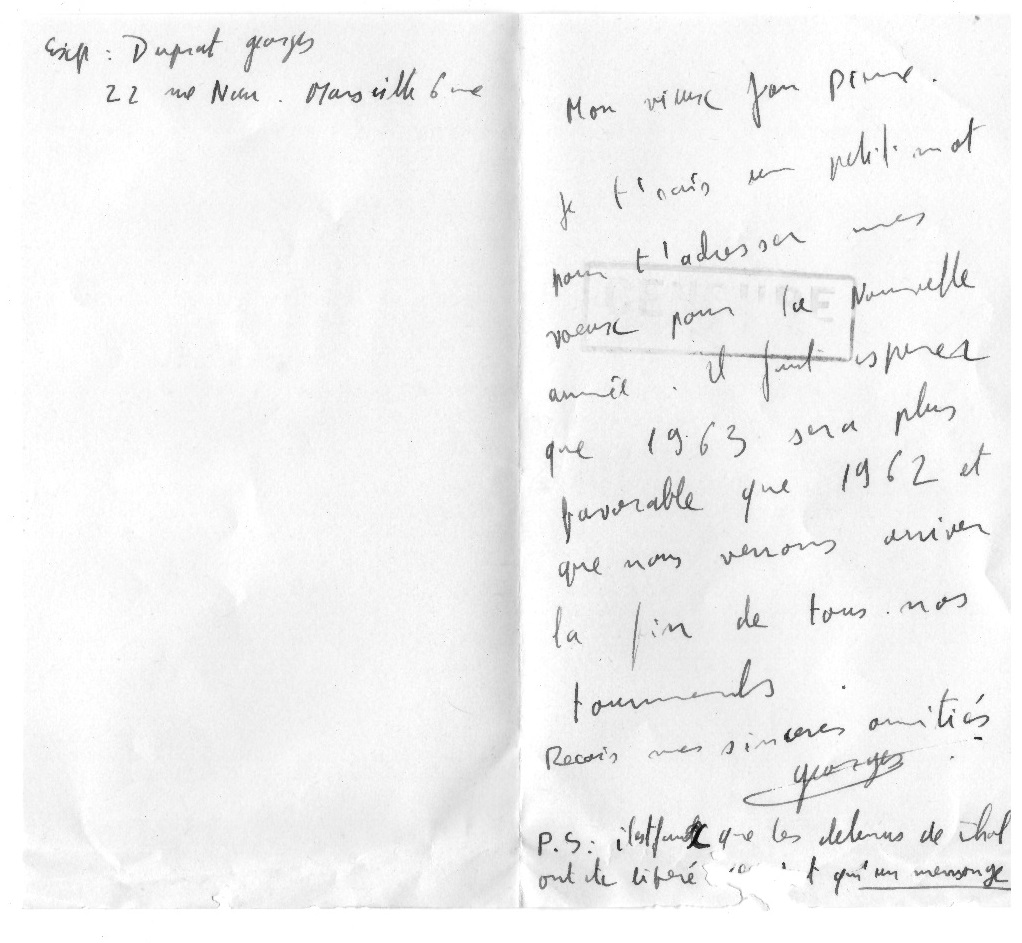 Exp : Duprat georges
22 rue Nau . Marseille 6me
Mon vieux Jean Pierre.
Je t'écris un petit mot
pour t'adresser mes
voeux pour la Nouvelle
année . il faut esperer
que 1963 sera plus
favorable que 1962 et
que nous verrons arriver
la fin de tous nos
tourments
Recois mes sinceres amitiés
georges
P.S : il est que les detenus de
ont ete liberé t qu'un mensonge